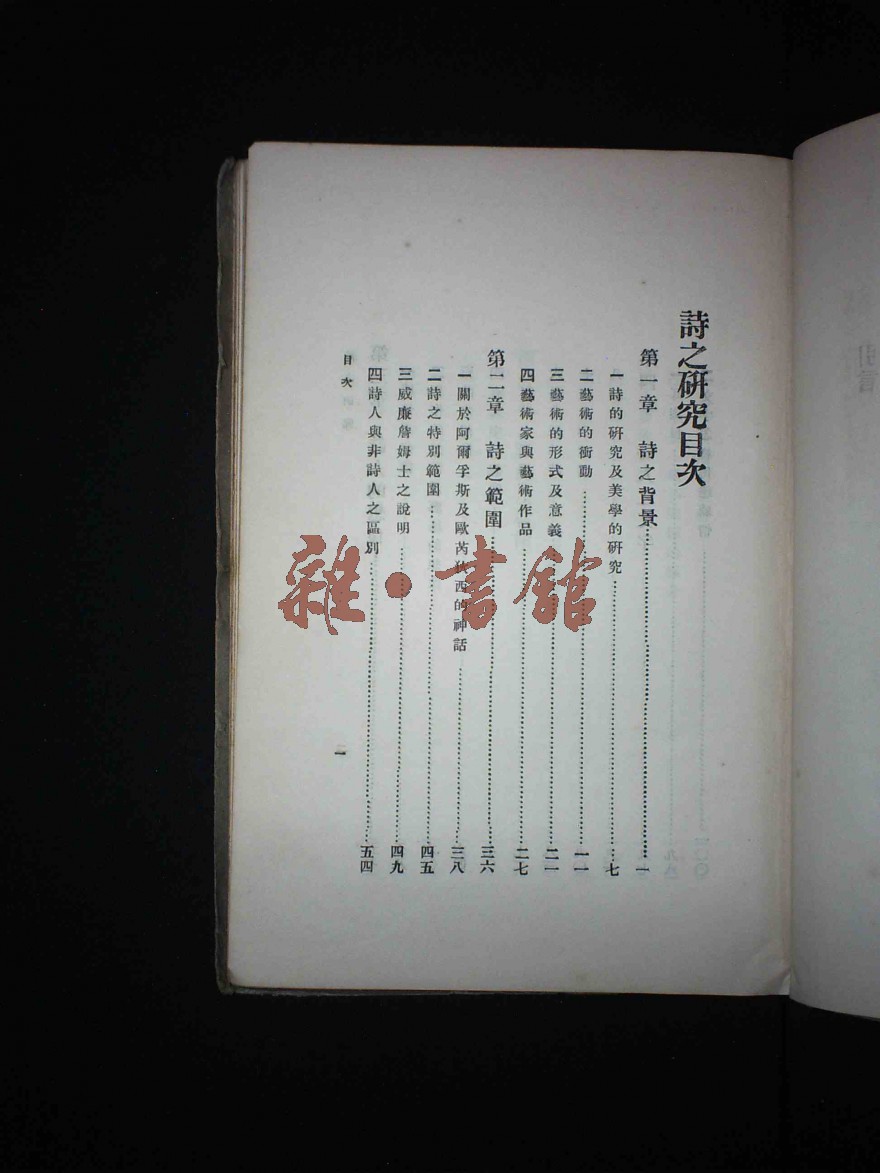 詩之研究目次
第一章　詩之背景……一
一 詩的研究及美學的研究……七
二 藝術的衝動……一一
三 藝術的形式及意義……二一
四 藝術家與藝術作品……二七
第二章　詩之範圍……三六
一 關於阿爾孚斯及歐芮狄西的神話……三八
二 詩之特別範圍……四五
三 威廉詹姆士之說明……四九
四 詩人與非詩人之區別……五四
目次
一
雜·書館